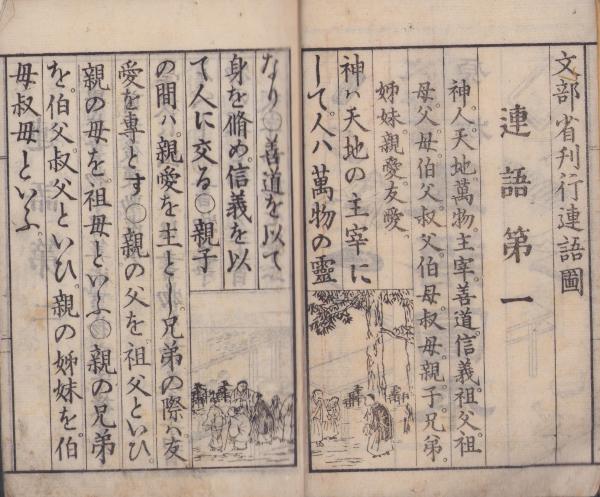 文部省刊行連語圖
連語第一
神。人。天地。萬物。主宰。善道。信義。祖父。祖
母。父母。伯父。叔父。伯母。叔母。親子。兄弟。
姊妹。親愛。友愛。
神ハ天地の主宰に
して。人ハ萬物の靈
なり〇善道を以て
身を脩め。信義を以
て人に交る〇親子
の間ハ。親愛を主とし。兄弟の際ハ。友
愛を專とす〇親の父を。祖父といひ。
親の母を。祖母といふ〇親の兄弟
を。伯父。叔父といひ。親の姊妹を。伯
母叔母といふ。